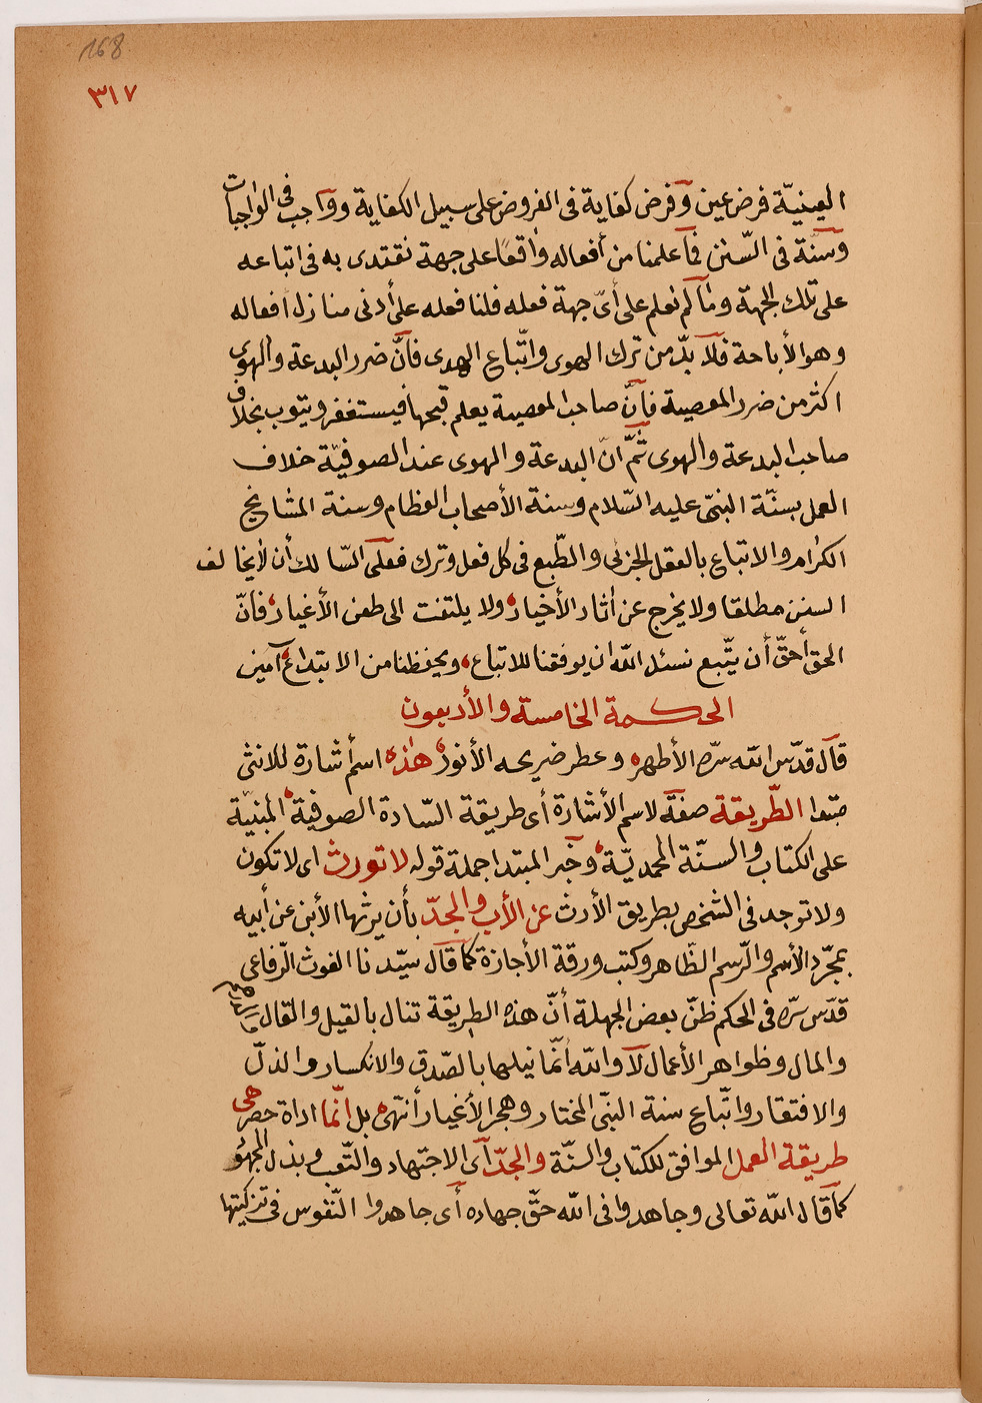 168
٣١٧
العينيّة فرض عين وفرض كفاية فى الفروض على سبيل الكفاية وواجب فى الواجبات
وسنّة فى السّنن فما علمنا من أفعاله واقعًا على جهة نقتدى به فى اتباعه
على تلك الجهة وما لم نعلم على أىّ جهة فعله فلنا فعله على أدنى منازل أفعاله
وهو الأباحة فلا بدّ من ترك الهوى واتّباع الهدى فانّ ضرر البدعة والهوى
اكثر من ضرر المعصية فانّ صاحب المعصية يعلم قبحها فيستغفر ويتوب بخلاف
صاحب البدعة والهوى ثمّ انّ البدعة والهوى عند الصوفيّة خلاف
العمل بسنّة النبىّ عليه السّلام وسنة الأصحاب العظام وسنة المشائخ
الكرام والاتباع بالعقل الجزئى والطّبع فى كل فعل وترك فعلى السّالك أن لايخالف
السنن مطلقا ولا يخرج عن أثار الأخيار ولا يلتفت الى طعن الأغيار فانّ
الحق أحقّ أن يتّبع نسئل اللّه ان يوفقنا للاتباع ويحفظنا من الابتداع آمين
الحكمة الخامسة والأربعون
قال قدّس اللّه سرّه الأطهر وعطر ضريحه الأنور هذه اسم أشارة للانثى
مبتدا الطّريقة صفة لاسم الأشارة أى طريقة السّادة الصوفية المبنيّة
على الكتاب والسنّة المحمديّة وخبر المبتدا جملة قوله لا تورث اى لا تكون
ولا توجد فى الشخص بطريق الأرث عن الأب والجدّ بأن يرثها الأبن عن أبيه
بمجرّد الأسم والرّسم الظّاهر وكتب ورقة الأجازة كما قال سيّدنا الغوث الرّفاعى
قدّس سرّه فى الحكم ظنّ بعض الجهلة أنّ هذه الطريقة تنال بالقيل والقال والدرهم
والمال وظواهر الأعمال لا واللّه أنّما نيلها بالصّدق والانكسار والذلّ
والافتقار واتّباع سنة النبّى المختار وهجر الأغيار أنتهى بل انّما اداة حصر هى
طريقة العمل الموافق للكتاب والسنّة والجدّ أى الاجتهاد والتّعب وبذل المجهود
كما قال اللّه تعالى وجاهدوا فى اللّه حقّ جهاده أى جاهدوا النّفوس فى تزكيتها